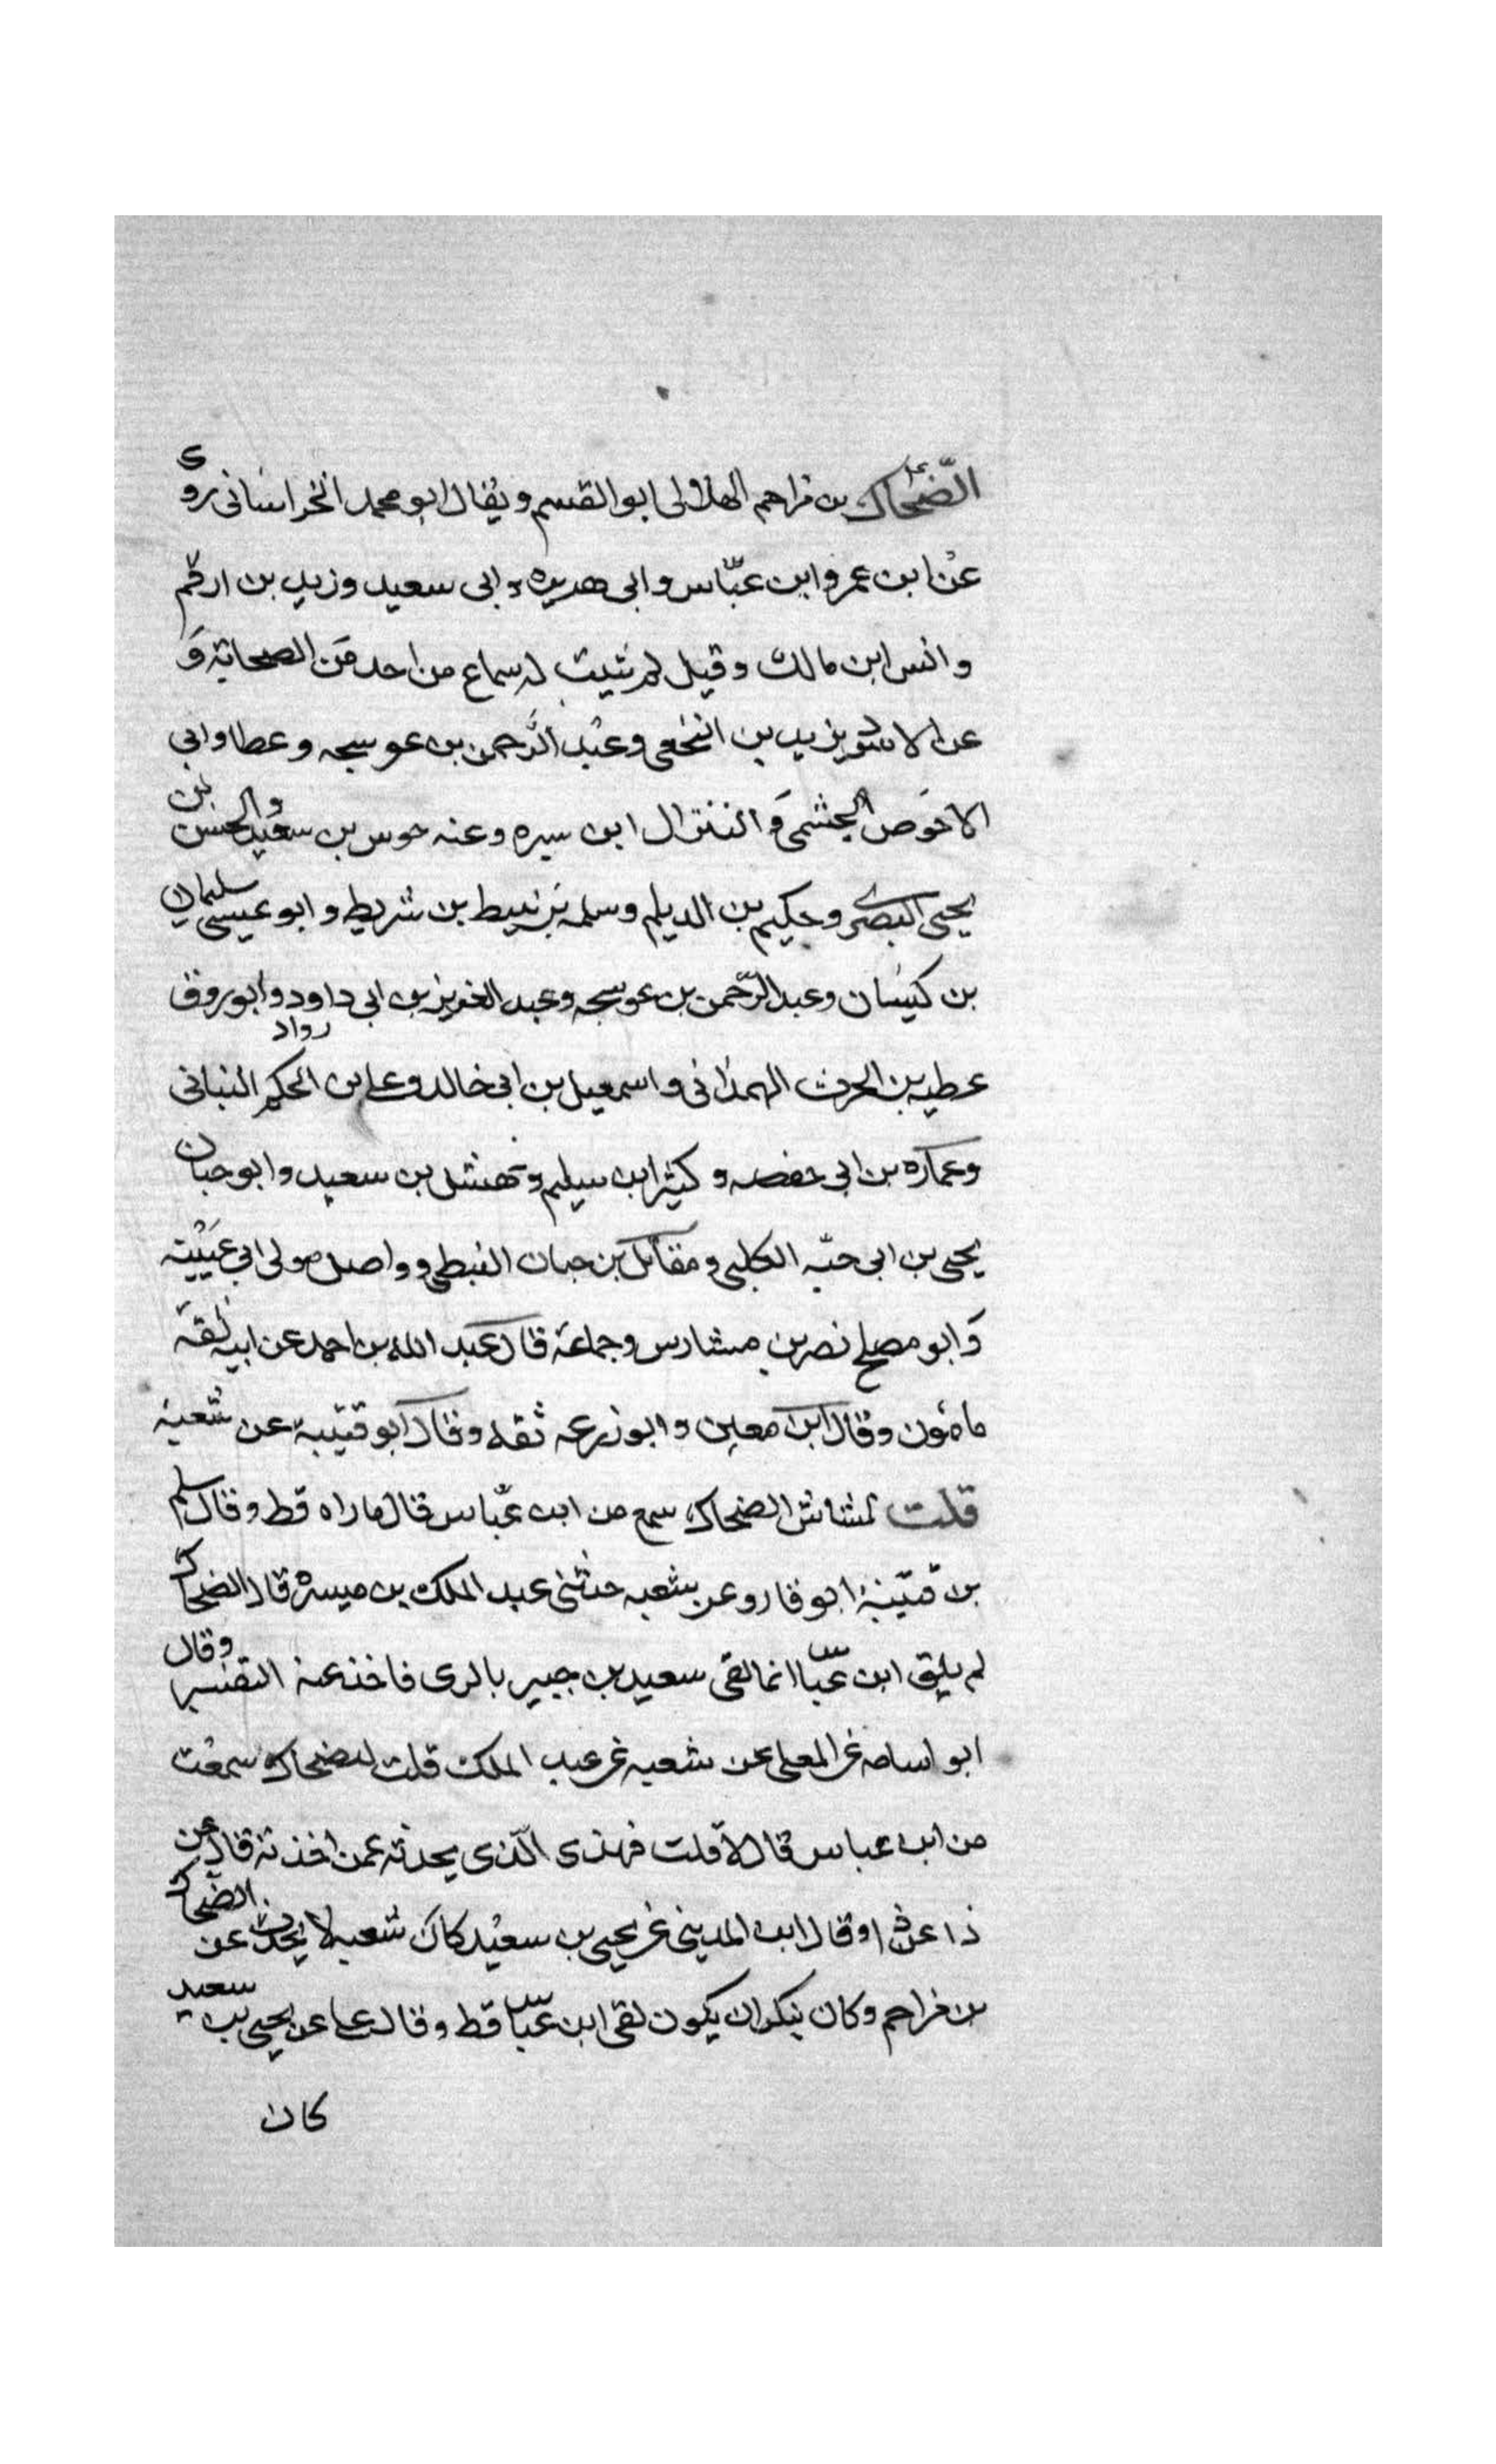 الضّحاك بن مزاحم الهلالى ابو القسم ويقال ابو محمد الخراسانى روى
عن ابن عمر وابن عبّاس وابى هريره وابى سعيد وزيد بن ارقم
وانس ابن مالك وقيل لم يثبت له سماع من احد من الصحابة و
عن الاسود بن يزيد بن النخعى وعبد الرّحمن بن عوسجه وعطا وابى
الاحوص الجشمى و النزال ابن سبره وعنه جويبر بن سعيد والحسن بن
يحيى البصرى وحكيم بن الديلم وسلمه بن نبيط بن شريط وابو عيسى سليمان
بن كيسان وعبد الرّحمن بن عوسجه وعبد العزيز بن ابى داود وابو روق
رواد
عطيه بن الحرث الهمدانى واسمعيل بن ابى خالد وعلى بن الحكم البنانى
وعماره بن ابى حفصه وكثير ابن سليم ونهشل بن سعيد وابو جناب
يحيى بن ابى حيّه الكلبى ومقاتل بن حيان النبطى وواصل مولى ابى عيينة
وابو مصلح نصر بن مشارس وجماعة قال عبد الله بن احمد عن ابيه ثقة
مامون وقال ابن معين وابو زرعه ثقه وقال ابو قتيبة عن شعبة
قلت لمشاش الضحاك سمع من ابن عبّاس قال ما راه قط وقال سلم
بن قتيبة ابو عن شعبه حدثنى عبد الملك بن ميسره قال الضحاك
لم يلق ابن عبّاس انما لقى سعيد بن جبير بالرى فاخذ عنه التفسير وقال
ابو اسامه عن المعلى عن شعبه عن عبد الملك قلت للضحاك سمعت
من ابن عباس قال لا قلت فهذى الّذى يحدثه عمن اخذته قال عن
ذا وعن ذا وقال ابن المدينى عن يحيى بن سعيد كان شعبه لا يحدث عن الضحاك
بن مزاحم وكان ينكر ان يكون لقى ابن عبّاس قط وقال على عن يحيى بن سعيد
كان